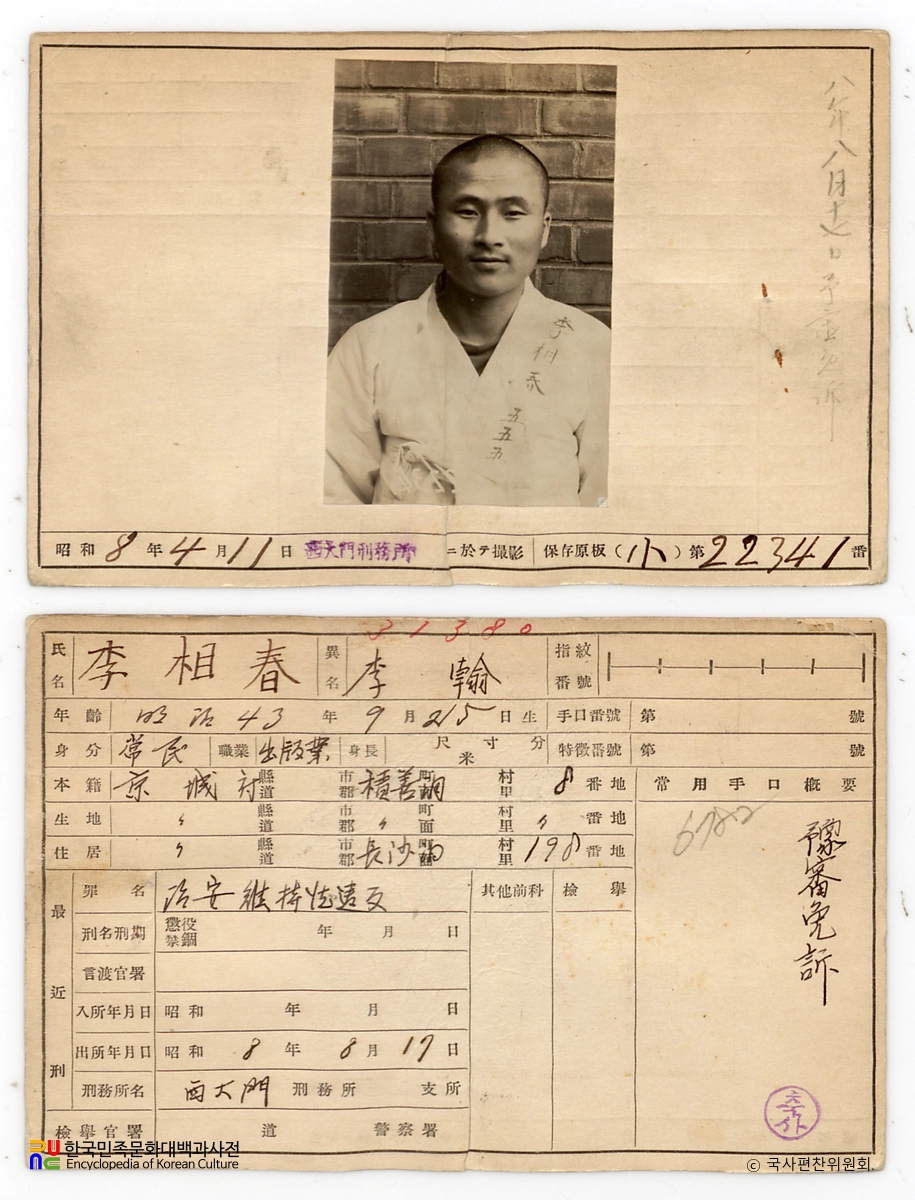 八年八月十七日予審免訴
李相春
五五五
昭和 8 年 4 月 11 日 西大門刑務所 ニ於テ撮影 保存原板(小)第 22341 番
31380
氏名 李相春 異名 李翰 指紋番號
年齡 明治 43 年 9 月 25 日生 手口番號 第 號
身分 常民 職業 出版業 身長 尺寸分 米 特徵番號 第 號
本籍 京城府 縣道 市郡 積善洞 町面 村里 8 番地 常用手口概要
生地 〃 縣道 市郡 〃 町面 村里 〃 番地
住居 〃 縣道 市郡 長沙洞 町面 村里 198 番地
豫審免訴
最近刑
罪名 治安維持法違反 其他前科 檢擧
刑名刑期 懲役 禁錮 年 月 日
言渡官署
入所年月日 昭和 年 月 日
出所年月日 昭和 8 年 8 月 17 日
刑務所名 西大門 刑務所 支所
檢擧官署 道 警察署
한국민족문화대백과사전
Encyclopedia of Korean Culture
© 국사편찬위원회.